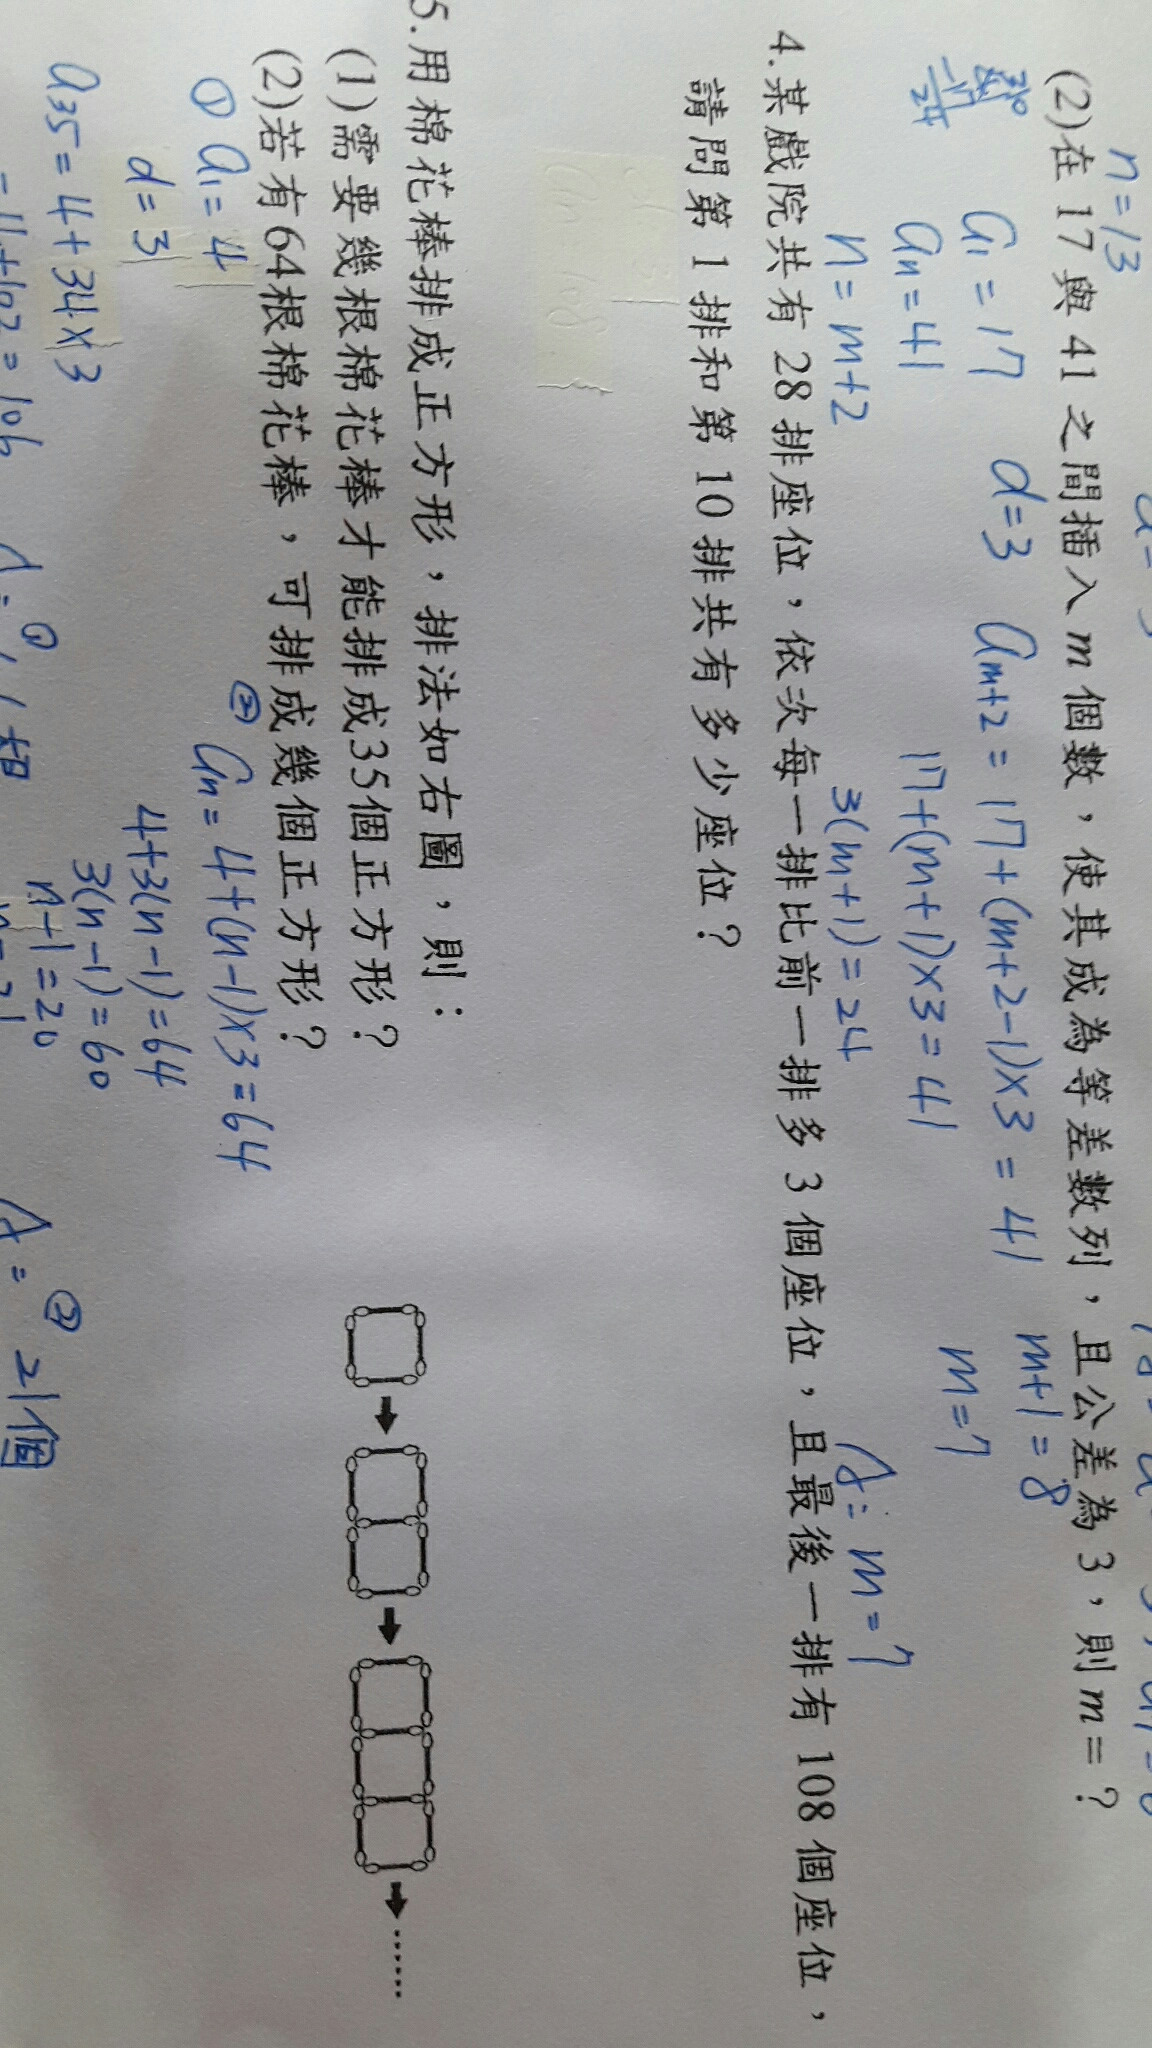 n=13
(2)在 17 與 41 之間插入 m 個數，使其成為等差數列，且公差為 3，則 m = ?
a₁ = 17 d=3 aₘ₊₂ = 17+(m+2-1)×3 = 41 m+1 = 8
aₙ = 41 17+(m+1)×3 = 41 m=7
-17
24
n = m+2 3(m+1) = 24 A: m = 7
4.某戲院共有 28 排座位，依次每一排比前一排多 3 個座位，且最後一排有 108 個座位，
請問第 1 排和第 10 排共有多少座位？
5.用棉花棒排成正方形，排法如右圖，則：
(1)需要幾根棉花棒才能排成35個正方形？
(2)若有64根棉花棒，可排成幾個正方形？
① a₁ = 4 ② aₙ = 4+(n-1)×3 = 64
d = 3 4+3(n-1) = 64
a₃₅ = 4+34×3 3(n-1) = 60
n-1 = 20
A = ② 21個